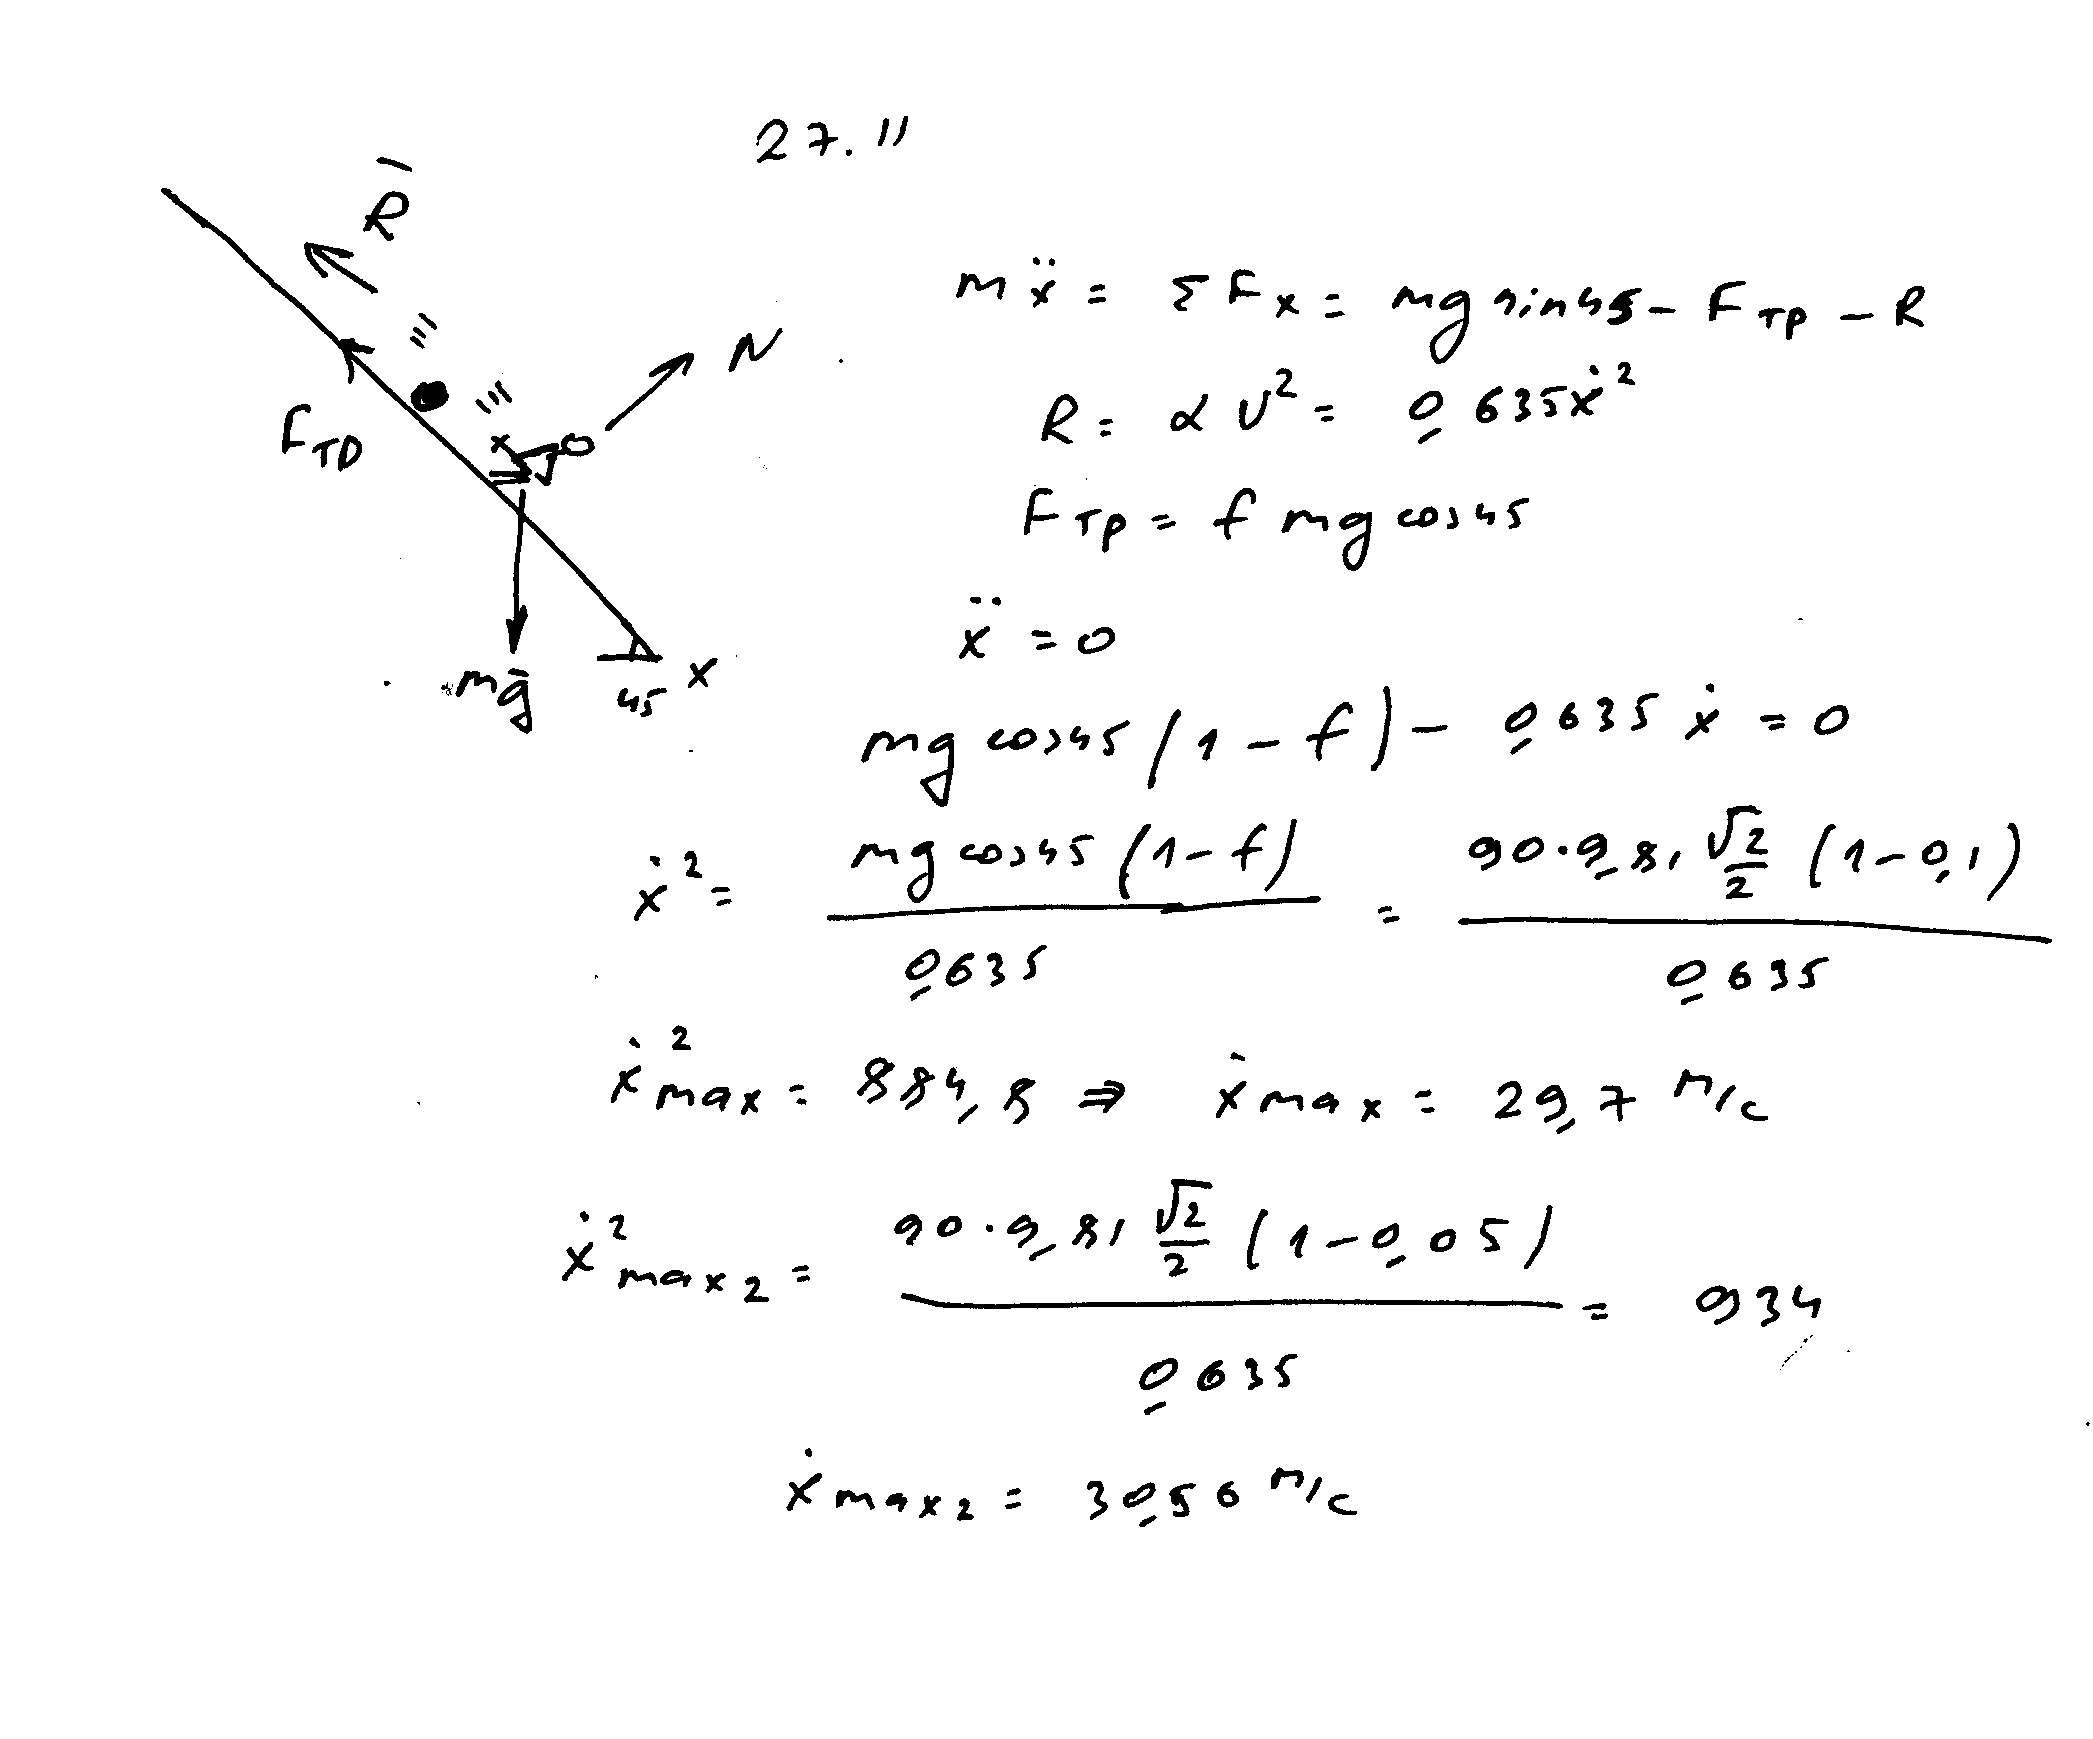 27.11
R̄
N
Fтр
x
mḡ
45
x
mẍ = ΣFx = mg sin45 - Fтр - R
R = αv² = 0,635ẋ²
Fтр = f mg cos45
ẍ = 0
mg cos45 (1 - f) - 0,635 ẋ = 0
ẋ² = mg cos45 (1 - f) / 0,635 = 90·9,81 √2/2 (1 - 0,1) / 0,635
ẋ²max = 884,8 ⇒ ẋmax = 29,7 м/с
ẋ²max2 = 90·9,81 √2/2 (1 - 0,05) / 0,635 = 934
ẋmax2 = 30,56 м/с